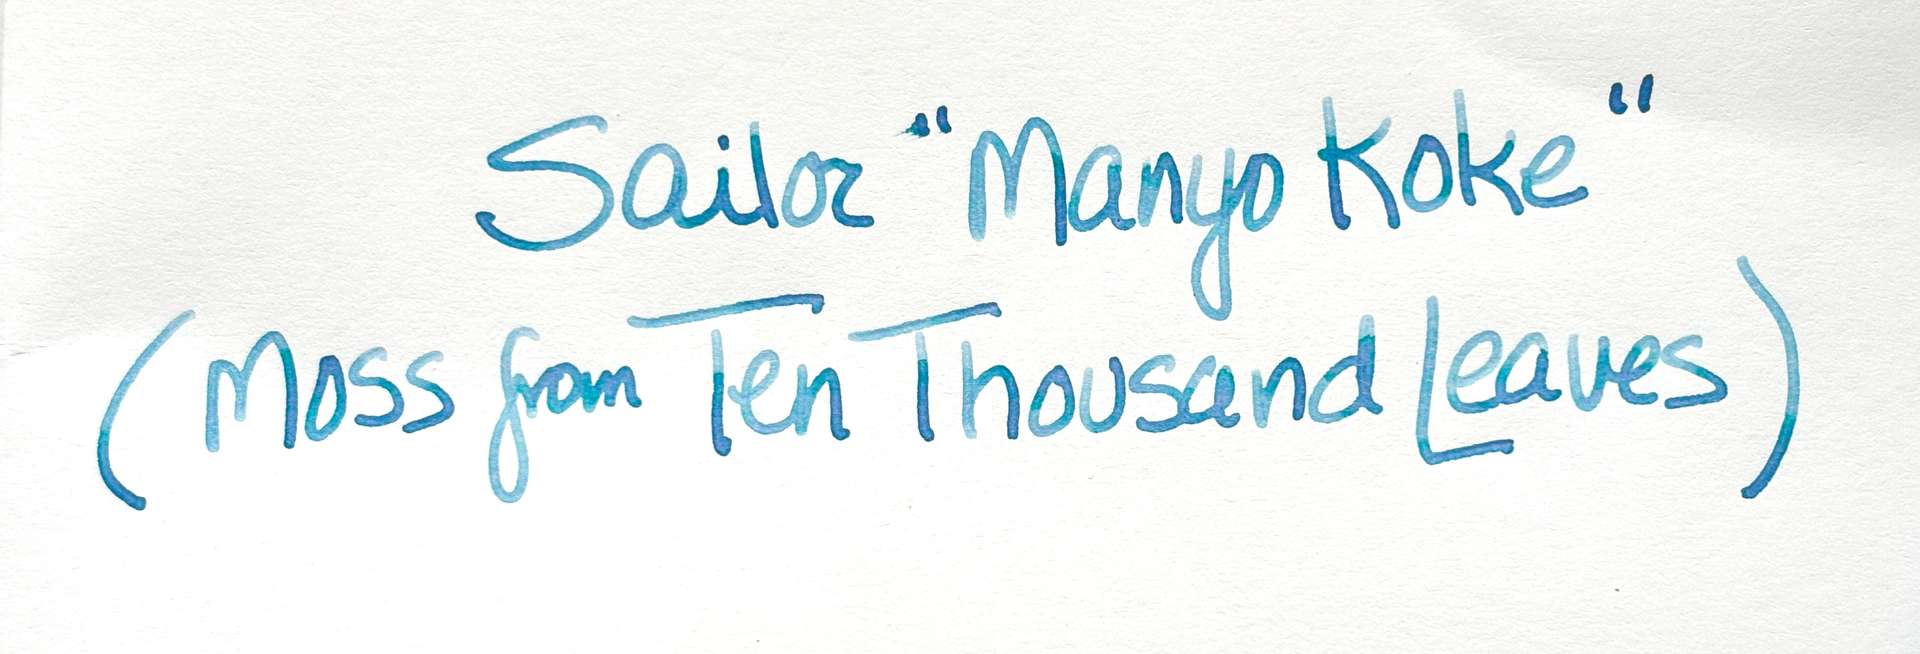 Sailor "Manyo Koke"
(Moss from Ten Thousand Leaves)